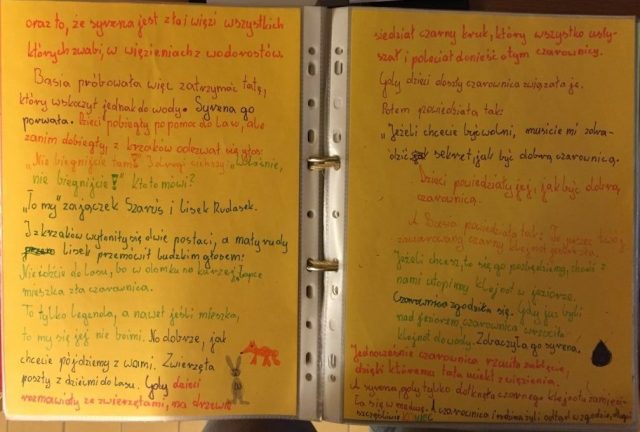 oraz to, że syrena jest zła i więzi wszystkich
których zwabi, w więzieniach z wodorostów.
Basia próbowała więc zatrzymać tatę,
który wskoczył jednak do wody. Syrena go
porwała. Dzieci pobiegły po pomoc do lasu, ale
zanim dobiegły z krzaków odezwał się głos:
"Nie biegnijcie tam! I drugi cichszy "właśnie,
nie biegnijcie!" kto to mówi?
"To my" zajączek Szaruś i lisek Rudasek.
I z krzaków wyłoniły się dwie postaci, a mały rudy
lisek przemówił ludzkim głosem:
Nie idźcie do lasu, bo w domku na kurzej łapce
mieszka zła czarownica.
To tylko legenda, a nawet jeśli mieszka,
to my się jej nie boimy. No dobrze, jak
chcecie pójdziemy z wami. Zwierzęta
poszły z dziećmi do lasu. Gdy dzieci
rozmawiały ze zwierzętami, na drzewie
siedział czarny kruk, który wszystko usły-
szał i poleciał donieść o tym czarownicy.
Gdy dzieci doszły czarownica związała je.
Potem powiedziała tak:
"Jeżeli chcecie być wolni, musicie mi zdra-
dzić sekret, jak być dobrą czarownicą.
Dzieci powiedziały jej, jak być dobrą
czarownicą.
A Basia powiedziała tak: To przez twój
zaczarowany czarny klejnot jesteś zła.
Jeżeli chcesz, to się go pozbędziemy, chodź z
nami utopimy klejnot w jeziorze.
Czarownica zgodziła się. Gdy już byli
nad jeziorem, czarownica wrzuciła
klejnot do wody. Zobaczyła go syrena.
Jednocześnie czarownica rzuciła zaklęcie,
dzięki któremu tata uciekł z więzienia.
A syrena, gdy tylko dotknęła czarnego klejnotu zamieni-
ła się w meduzę. A czarownica i rodzina żyli odtąd w zgodzie, długo i
szczęśliwie KONIEC